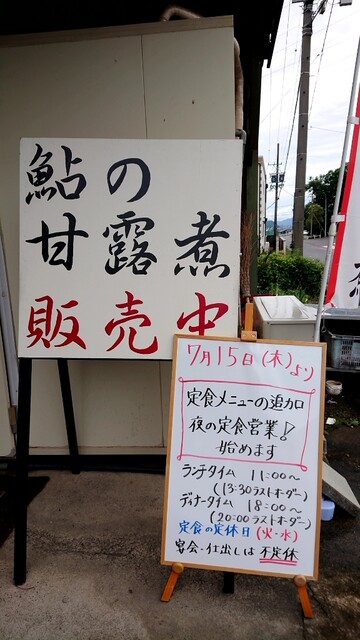 鮎の
甘露煮
販売中
7月15日(木)より
定食メニューの追加
夜の定食営業!
始めます
ランチタイム 11:00～
(13:30ラストオーダー)
ディナータイム 18:00～
(20:00ラストオーダー)
定食の定休日(火・水)
宴会・仕出しは不定休